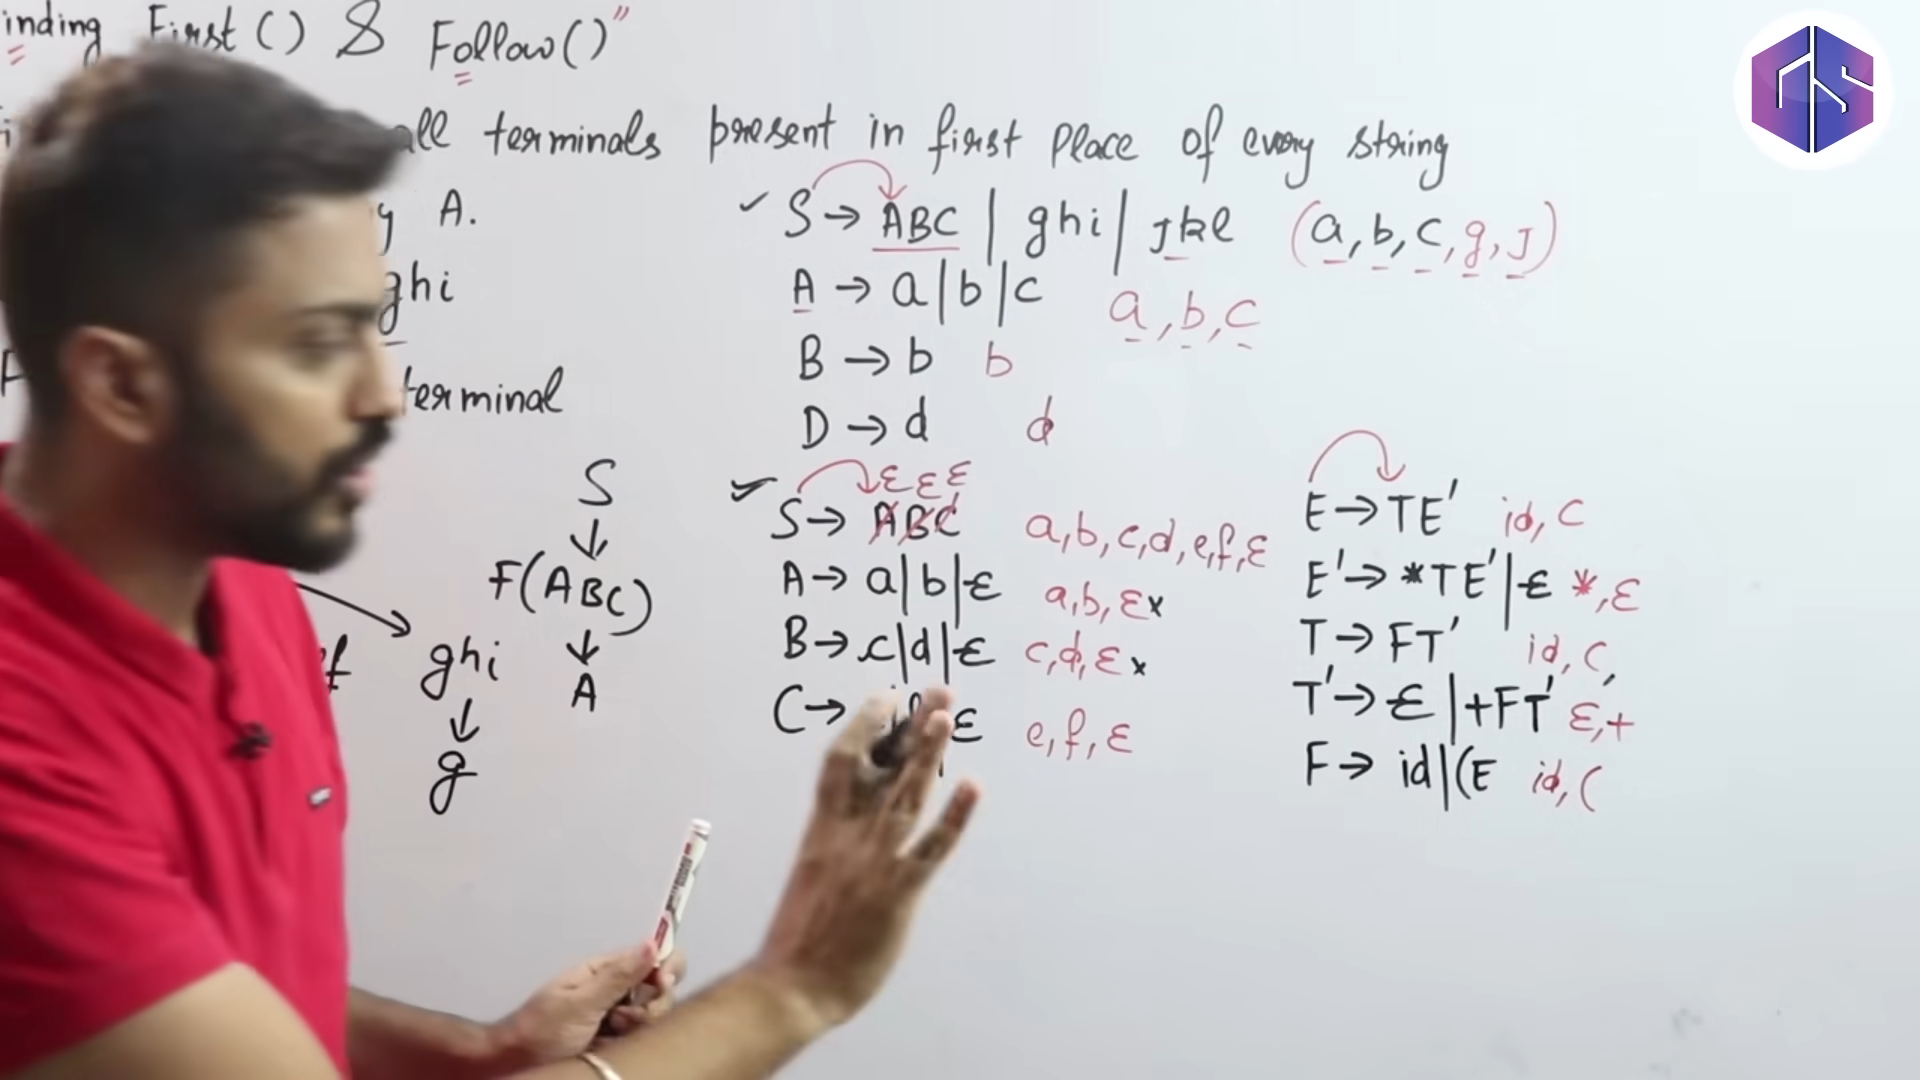 inding First() & Follow()"
all terminals present in first Place of every string
A.
ghi
terminal
S
↓
F(ABC)
↓
A
ghi
↓
g
✓ S → ABC | ghi | Jkl (a, b, c, g, J)
A → a | b | c a, b, c
B → b b
D → d d
ε ε ε
✓ S → ABC a, b, c, d, e, f, ε
A → a | b | ε a, b, ε x
B → c | d | ε c, d, ε x
C → ε e, f, ε
E → TE' id, (
E' → *TE' | ε *, ε
T → FT' id, (,
T' → ε | +FT' ε, +
F → id | (E id, (